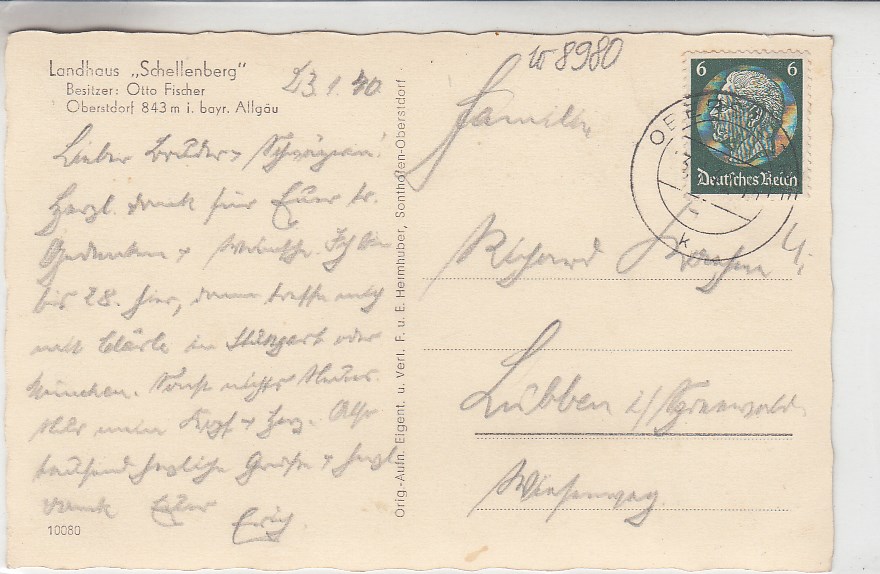 Landhaus „Schellenberg"
Besitzer: Otto Fischer
Oberstdorf 843 m i. bayr. Allgäu
23.1.40
Lieber Bruder + Schwägerin!
Herzl. Dank für Euer
Gedenken + Wünsche. Ich bin
bis 28. hier, dann treffe mich
mit in Stuttgart oder
München. Sonst nichts Neues.
mein Kopf + Herz. Also
tausend herzliche Grüße + herzl
Dank Euer
Erich.
10080
Orig.-Aufn. Eigent. u. Verl. F. u. E. Hermhuber, Sonthofen-Oberstdorf
w 8980
6 6
Deutsches Reich
Familie
Richard
Lübben i/Spreewald
Wiesenweg